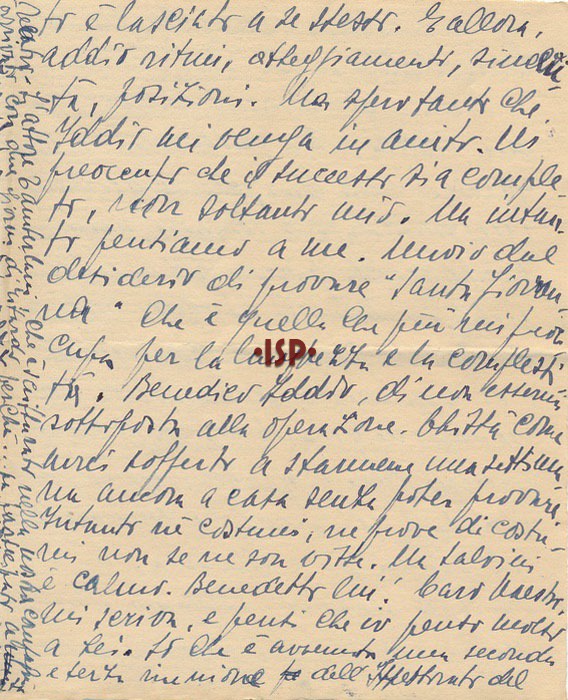 to è lasciato a se stesso. E allora,
addio ritmi, atteggiamento,
posizioni. Ma spero tanto che
Iddio mi venga in aiuto. Mi
preoccupo che il successo sia comple
to, non soltanto mio. Ma intan
to pensiamo a me. Muoio dal
desiderio di provare "Santa Giovan
na" che è quella che più mi preoc
cupa per la e la complessi
tà. Benedico Iddio, di non essermi
sottoposta alla operazione. Chissà come
avrei sofferto a starmene una settima
na ancora a casa senza poter provare.
Intanto nè costumi, nè prove di costu
mi non se ne son viste. Ma Salvini
è calmo. Benedetto lui! Caro Maestro,
mi scriva, e pensi che io penso molto
a Lei. So che è avvenuta una seconda
e terza riunione dell'Ispettorato del
Teatro. L'attore che è nella nostra compagnia
con due giorni di ritardo perchè
·ISP·